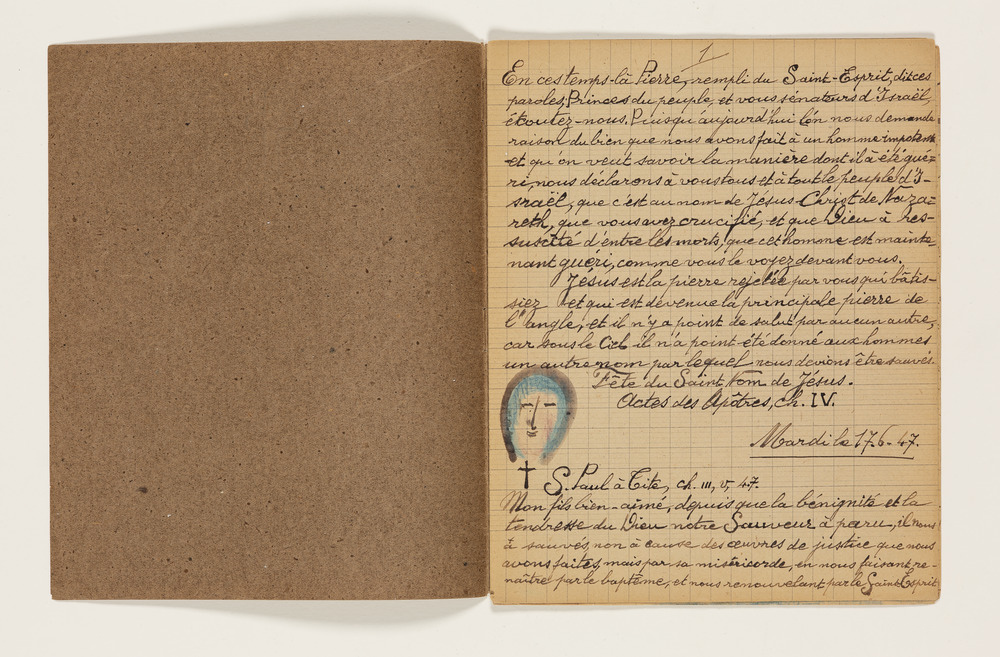 1
En ces temps-là Pierre, rempli du Saint-Esprit, dit ces
paroles, Princes du peuple, et vous sénateurs d'Israël,
écoutez-nous. Puisqu'aujourd'hui l'on nous demande
raison du bien que nous avons fait à un homme impotent
et qu'on veut savoir la manière dont il à été gué=
ri, nous déclarons à vous tous et à tout le peuple d'I-
sraël, que c'est au nom de Jésus-Christ de Naza=
reth, que vous avez crucifié, et que Dieu à res-
suscité d'entre les morts, que cet homme est mainte-
nant guéri, comme vous le voyez devant vous.
Jésus est la pierre rejetée par vous qui bâtis-
siez et qui est devenue la principale pierre de
l'angle, et il n'y a point de salut par aucun autre,
car sous le Ciel il n'a point été donné aux hommes
un autre nom par lequel nous devions être sauvés.
Fête du Saint Nom de Jésus.
Actes des Apôtres, ch. IV.
Mardi le 17.6-47.
S. Paul à Tite, ch. III, v, 4.7.
Mon fils bien-aimé, depuis que la bénignité et la
tendresse du Dieu notre Sauveur à paru, il nous
à sauvés, non à cause des œuvres de justice que nous
avons faites, mais par sa miséricorde, en nous faisant re-
naître par le baptême, et nous renouvelant par le Saint-Esprit